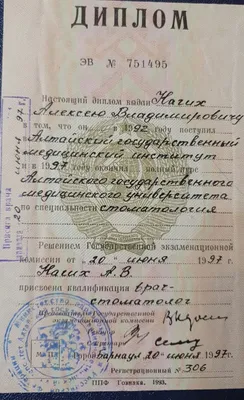 ДИПЛОМ
ЭВ № 751495
Настоящий диплом выдан Нагих
Алексею Владимировичу
в том, что он в 1992 году поступил
в Алтайский государственный
медицинский институт
и в 1997 году окончил полный курс
Алтайского государственного
медицинского университета
по специальности стоматология
Решением Государственной экзаменационной
комиссии от "20" июня 1997 г.
Нагих А.В.
присвоена квалификация врач-
стоматолог
Председатель Государственной
экзаменационной комиссии
Ректор
Секретарь
М.П. Город Барнаул 20 июня 1997 г.
Регистрационный № 306
ППФ Гознака. 1993.
Присяга врача
принята 20 июня 1997 г.